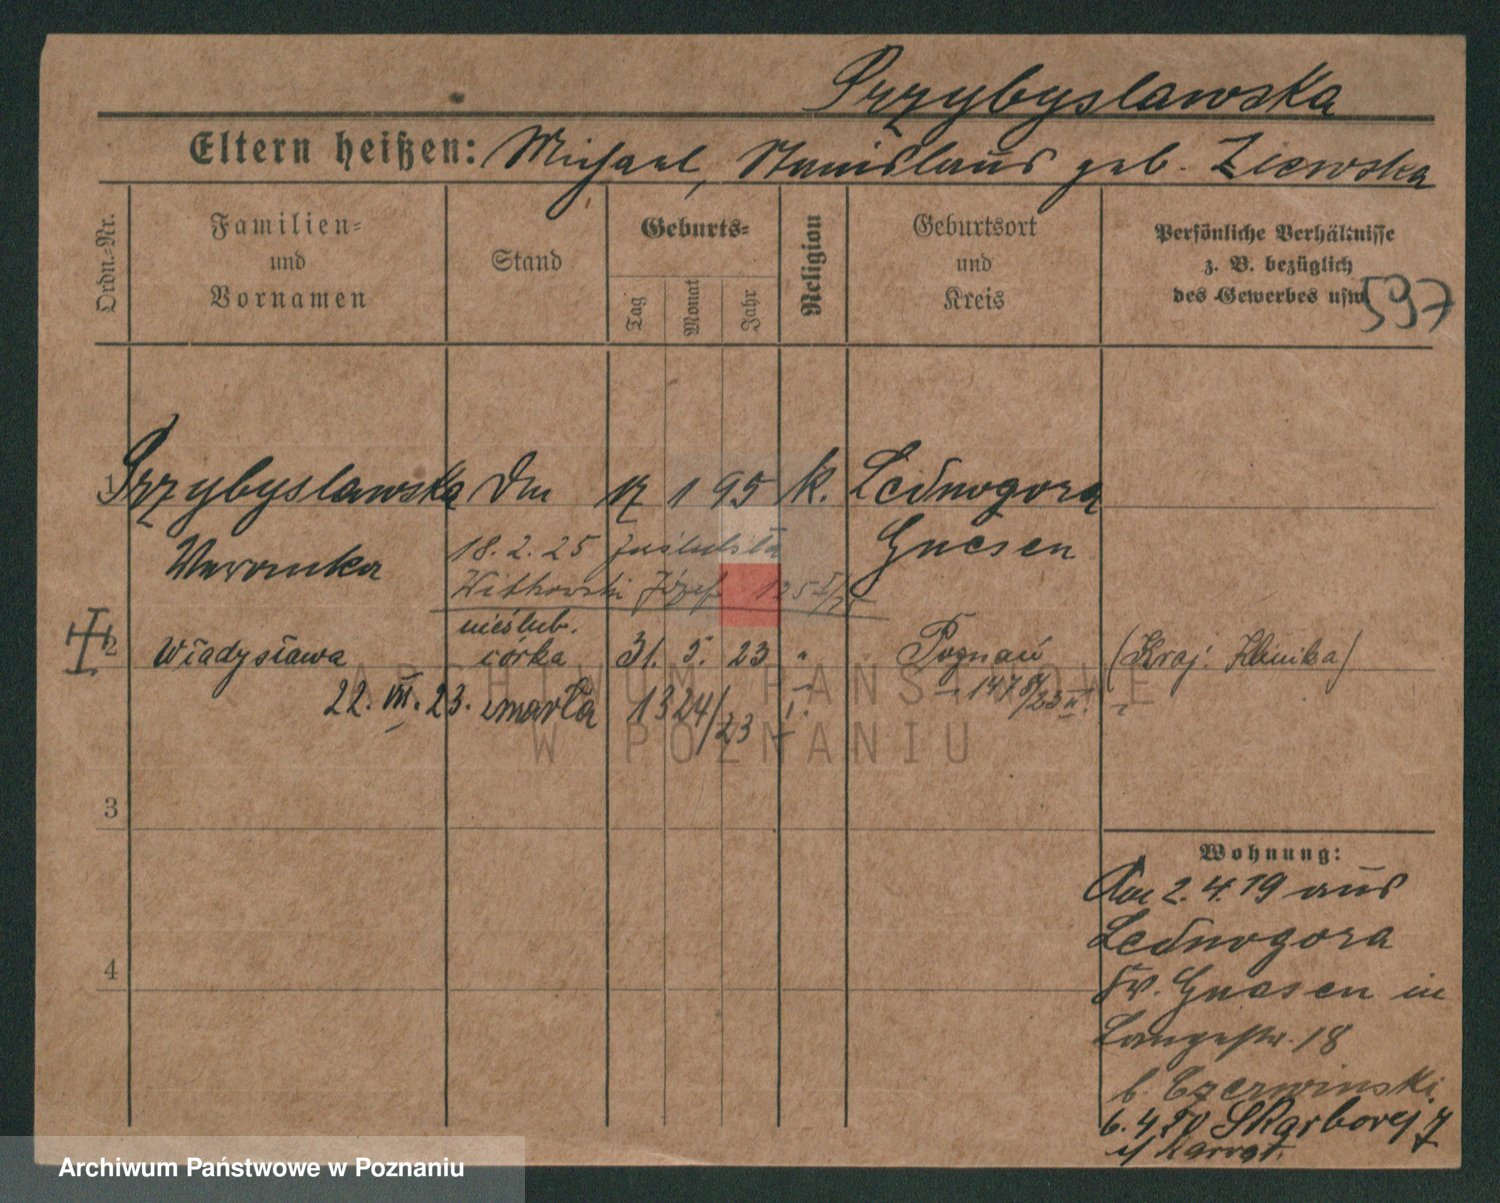 Przybyslawska
Eltern heißen: Michael, Stanislaus geb. Ziewska
Ordn.-Nr.
Familien-
und
Vornamen
Stand
Geburts-
Tag
Monat
Jahr
Religion
Geburtsort
und
Kreis
Persönliche Verhältnisse
z. B. bezüglich
des Gewerbes usw.
597
1 Przybyslawska 17 1 95 k. Lednogora
Veronika 18. 2. 25 zaślubiła Gnesen
Witkowski Józef
nieślub.
2 Władysława córka 31. 5. 23 " Poznań (Kraj. Klinika)
22. VII. 23. zmarła 1324/23
3
4
Wohnung:
Am 2.4.19 aus
Lednogora
Kr. Gnesen in
Langestr. 18
b. Czerwinski
6. 4 20 Skarbowej 7
ARCHIWUM PAŃSTWOWE
W POZNANIU
Archiwum Państwowe w Poznaniu